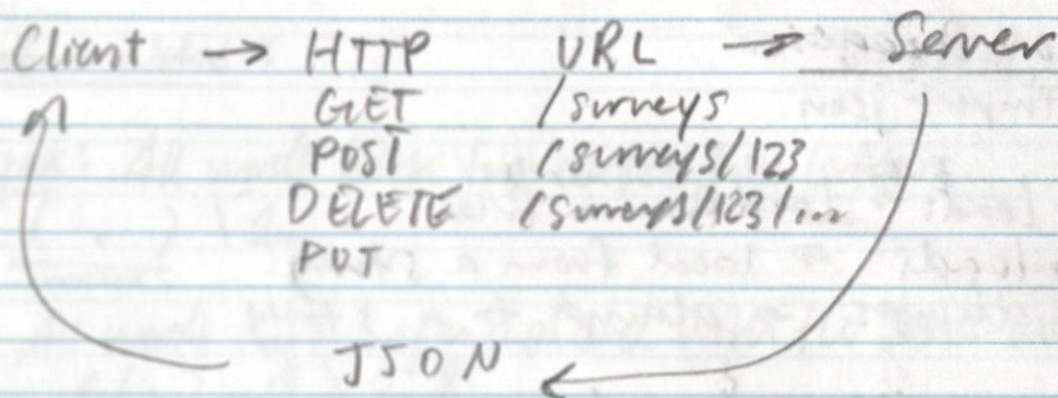 Client → HTTP URL → Server
GET /surveys
POST /surveys/123
DELETE /surveys/123/...
PUT
JSON